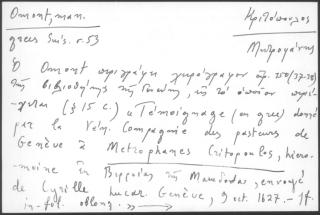 Omont, man.
grecs Suis. σ. 53
Κριτόπουλος
Μητροφάνης
Ὁ Omont περιγράφει χειρόγραφον
τῆς βιβλιοθήκης τῆς Γενεύης, εἰς τὸ ὁποῖον περιέ-
χεται (§ 15 c.) « Témoignage (en grec) donné
par la Vén. Compagnie des pasteurs de
Genève à Metrophanes Critopoulos, hiéro-
moine ἐκ Βερροίας τῆς Macédoine, envoyé
de Cyrille Lucar. Genève, 9 oct. 1627. – 1 f.
in-fol. oblong. »